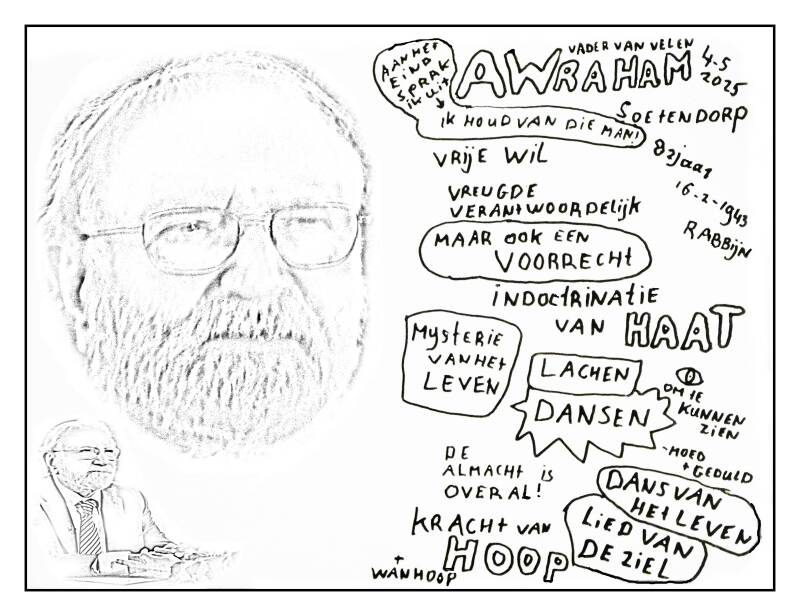 AAN HET
EIND
SPRAK
IK UIT
IK HOUD VAN DIE MAN!
VADER VAN VELEN
AWRAHAM
4-5
2025
SOETENDORP
82 jaar
16-2-1943
RABBIJN
VRIJE WIL
VREUGDE
VERANTWOORDELIJK
MAAR OOK EEN
VOORRECHT
INDOCTRINATIE
VAN HAAT
MYSTERIE
VAN HET
LEVEN
LACHEN
DANSEN
OM TE
KUNNEN
ZIEN
-MOED
+ GEDULD
DE
ALMACHT IS
OVERAL!
DANS VAN
HET LEVEN
LIED VAN
DE ZIEL
KRACHT VAN
HOOP
+
WANHOOP